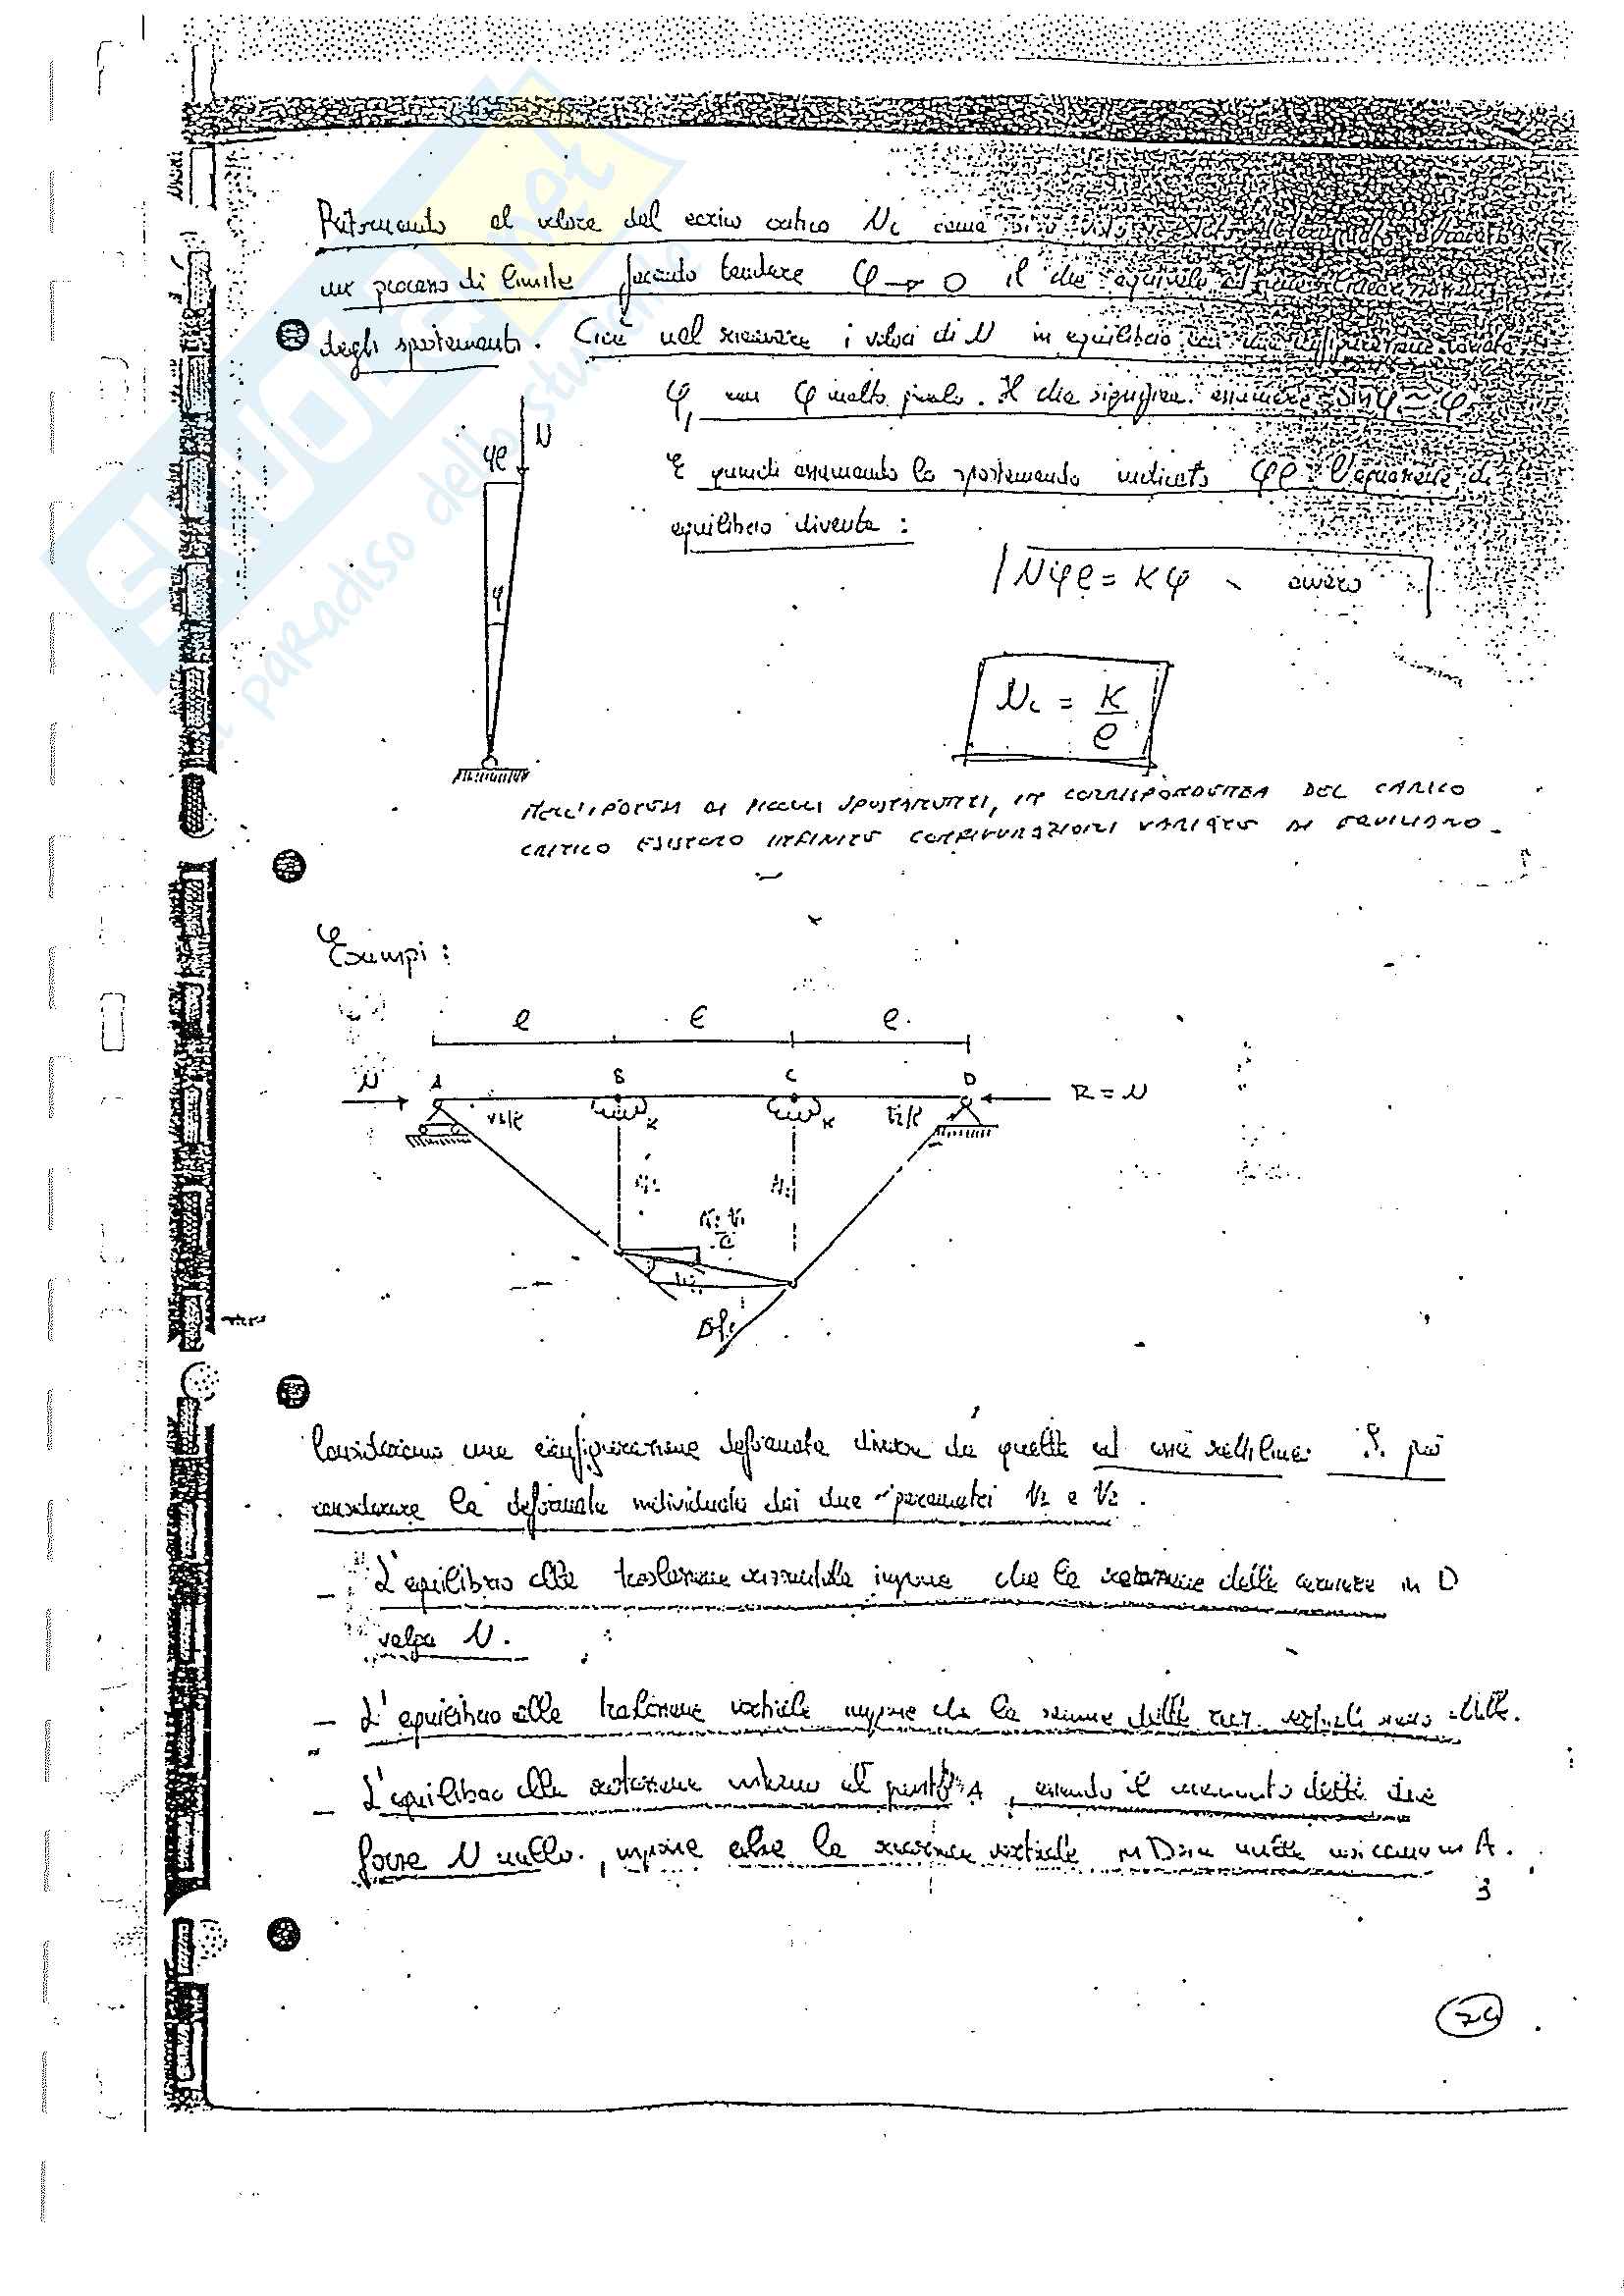 Ritornando al valore del carico critico Nc come
un processo di limite facendo tendere φ → 0 il che equivale
degli spostamenti. Cioè nel ricercare i valori di N in equilibrio con una configurazione
φ, con φ molto piccolo. Il che significa assumere sinφ ≃ φ
E quindi assumendo lo spostamento indicato φl l'equazione di
equilibrio diventa:
N
φl
φ
Nφl = Kφ ovvero
Nc = K/l
NELL'IPOTESI DI PICCOLI SPOSTAMENTI, IN CORRISPONDENZA DEL CARICO
CRITICO ESISTONO INFINITE CONFIGURAZIONI VARIATE DI EQUILIBRIO.
Esempi:
l l l.
N A B C D R = N
K K
Consideriamo una configurazione deformata diversa da quella ad asse rettilineo. Si può
considerare la deformata individuata dai due parametri V1 e V2.
- L'equilibrio alla traslazione orizzontale impone che la reazione della cerniera in D
valga N.
- L'equilibrio alla traslazione verticale impone che la somma delle reaz. verticali sia nulla.
- L'equilibrio alla rotazione intorno al punto A, essendo il momento delle due
forze N nullo, impone che la reazione verticale in D sia nulla così come in A.
3
74
skuola.net
il paradiso dello studente